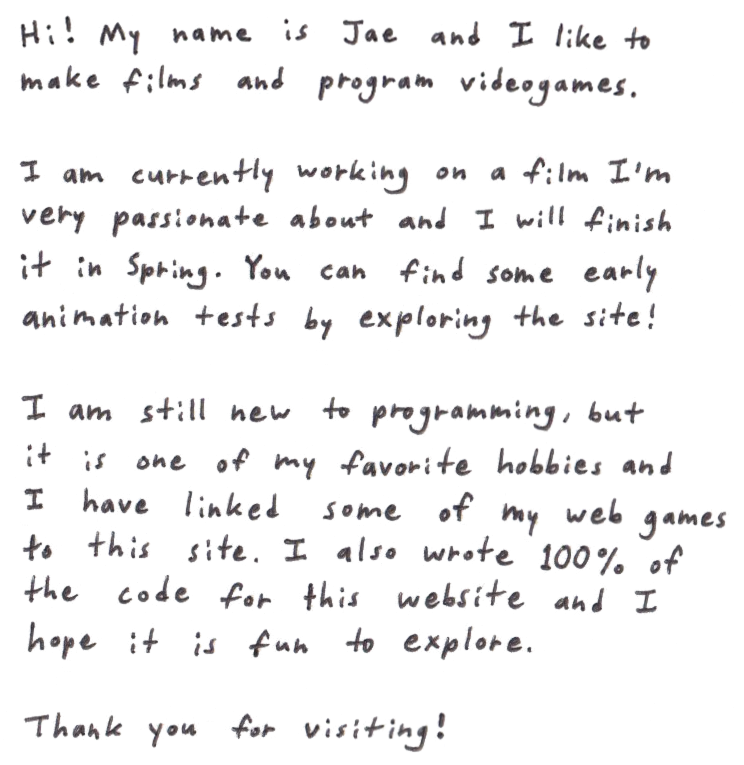 Hi! My name is Jae and I like to
make films and program videogames.
I am currently working on a film I'm
very passionate about and I will finish
it in Spring. You can find some early
animation tests by exploring the site!
I am still new to programming, but
it is one of my favorite hobbies and
I have linked some of my web games
to this site. I also wrote 100% of
the code for this website and I
hope it is fun to explore.
Thank you for visiting!